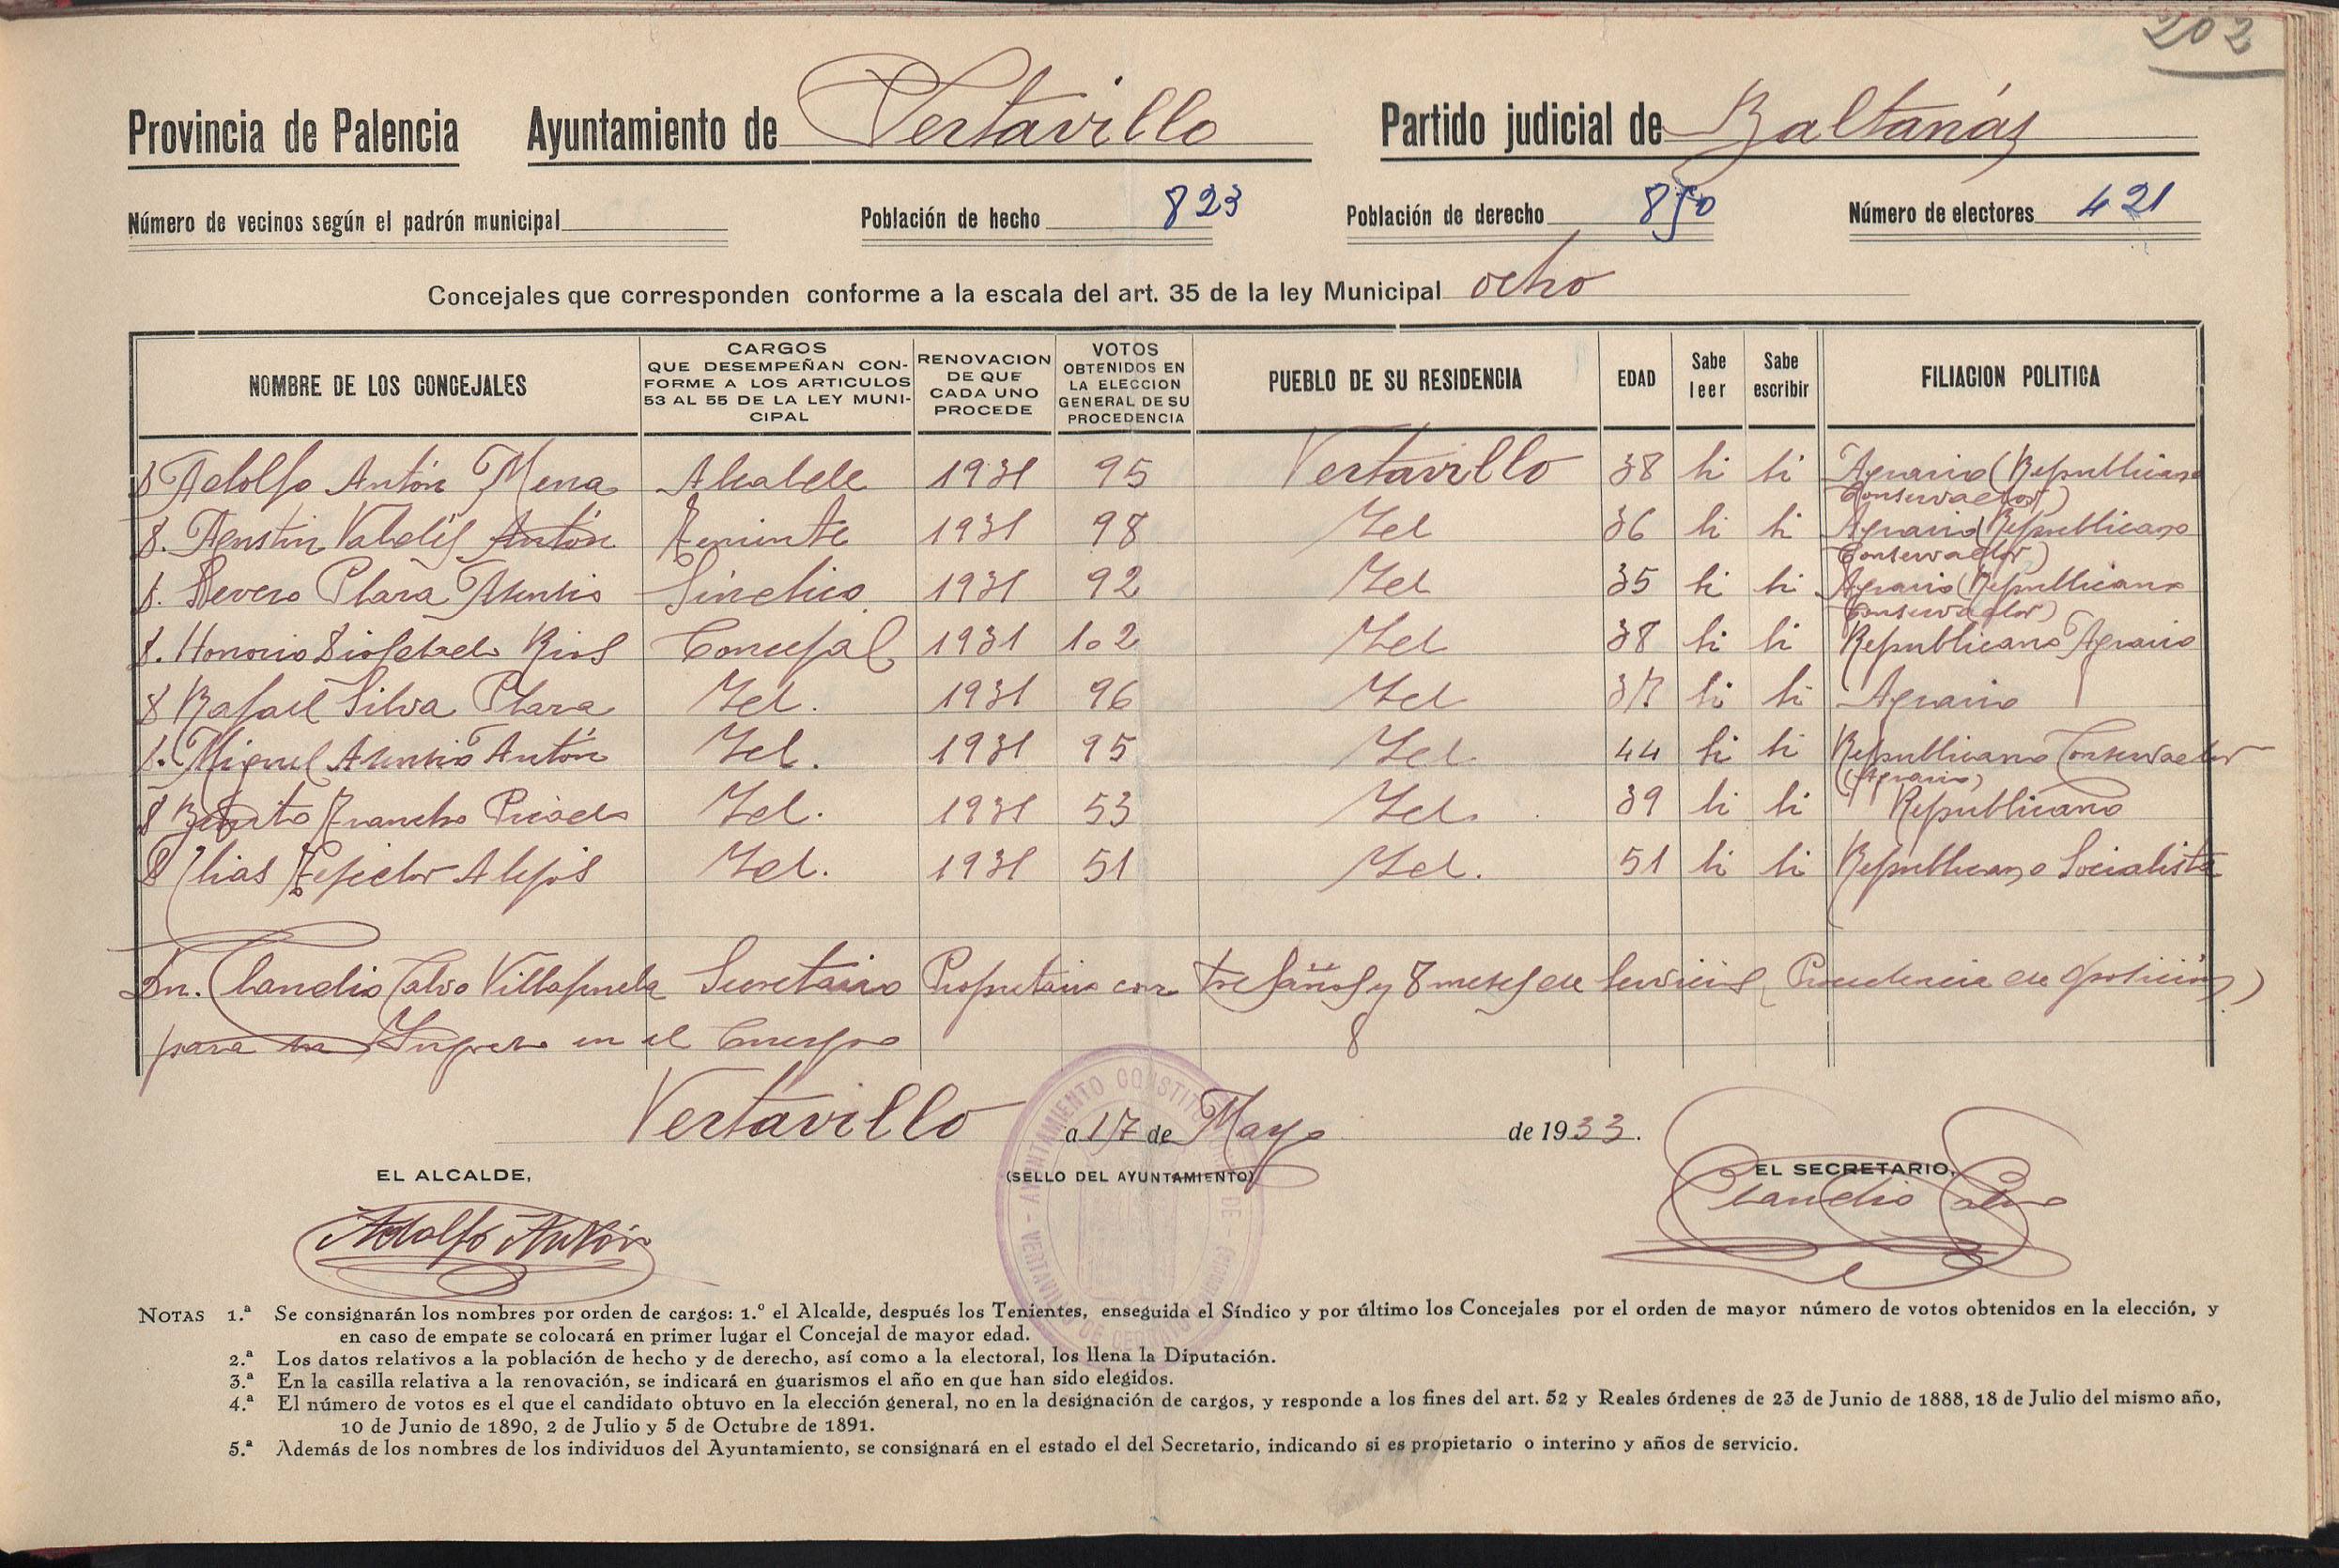 202
Provincia de Palencia Ayuntamiento de Vertavillo Partido judicial de Baltanás
Número de vecinos según el padrón municipal Población de hecho 823 Población de derecho 850 Número de electores 421
Concejales que corresponden conforme a la escala del art. 35 de la ley Municipal ocho
NOMBRE DE LOS CONCEJALES
CARGOS
QUE DESEMPEÑAN CON-
FORME A LOS ARTICULOS
53 AL 55 DE LA LEY MUNI-
CIPAL
RENOVACION
DE QUE
CADA UNO
PROCEDE
VOTOS
OBTENIDOS EN
LA ELECCION
GENERAL DE SU
PROCEDENCIA
PUEBLO DE SU RESIDENCIA
EDAD
Sabe
leer
Sabe
escribir
FILIACION POLITICA
Adolfo Antón Mena Alcalde 1931 95 Vertavillo 38 si si Agrario (Republicano
Conservador)
Agustin Valdés Antón Teniente 1931 98 Id 36 si si Agrario (Republicano
Conservador)
Severo Plaza Asensio Síndico 1931 92 Id 35 si si Agrario (Republicano
Conservador)
Honorio Diosdado Rios Concejal 1931 102 Id 38 si si Republicano Agrario
Rafael Silva Plaza Id. 1931 96 Id 37 si si Agrario
Miguel Asensio Antón Id. 1931 95 Id 44 si si Republicano Conservador
(Agrario)
Benito Francho Id. 1931 53 Id. 39 si si Republicano
Elias Tejedor Alejos Id. 1931 51 Id. 51 si si Republicano Socialista
Dn. Claudio Calvo Secretario Propietario con tres años y 8 meses de servicios (Procedencia de oposición)
para su Ingreso en el Cuerpo
Vertavillo a 17 de Mayo de 1933.
EL ALCALDE, (SELLO DEL AYUNTAMIENTO) EL SECRETARIO,
Adolfo Antón Claudio Calvo
AYUNTAMIENTO CONSTITUCIONAL DE VERTAVILLO DE CERRATO
NOTAS 1.ª Se consignarán los nombres por orden de cargos: 1.º el Alcalde, después los Tenientes, enseguida el Síndico y por último los Concejales por el orden de mayor número de votos obtenidos en la elección, y
en caso de empate se colocará en primer lugar el Concejal de mayor edad.
2.ª Los datos relativos a la población de hecho y de derecho, así como a la electoral, los llena la Diputación.
3.ª En la casilla relativa a la renovación, se indicará en guarismos el año en que han sido elegidos.
4.ª El número de votos es el que el candidato obtuvo en la elección general, no en la designación de cargos, y responde a los fines del art. 52 y Reales órdenes de 23 de Junio de 1888, 18 de Julio del mismo año,
10 de Junio de 1890, 2 de Julio y 5 de Octubre de 1891.
5.ª Además de los nombres de los individuos del Ayuntamiento, se consignará en el estado el del Secretario, indicando si es propietario o interino y años de servicio.